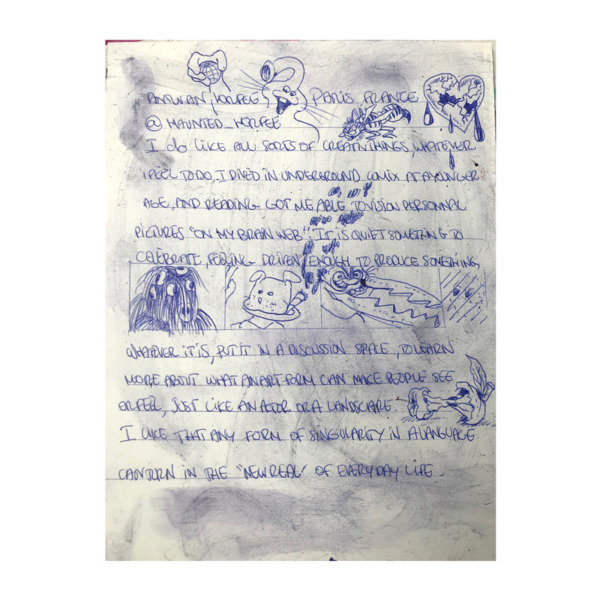 ANTWAN, HORFEE, PARIS, FRANCE
@ HAUNTED_HORFEE
I do LIKE ALL SORTS OF CREATIN THINGS, WHATEVER
I FEEL TO DO, I DIVED IN UNDERGROUND COMIX AT A YOUNGER
AGE, AND READING GOT ME ABLE TO VISION PERSONNAL
PICTURES "ON MY BRAIN WEB". IT IS QUIET SOMETHING TO
CELEBRATE, FEELING DRIVEN ENOUGH TO PRODUCE SOMETHING,
WHATEVER IT IS, PUT IT IN A DISCUSSION SPACE, TO LEARN
MORE ABOUT WHAT AN ART FORM CAN MAKE PEOPLE SEE
OR FEEL, JUST LIKE AN ACTOR OR A LANDSCAPE.
I LIKE THAT ANY FORM OF SINGULARITY IN A LANGUAGE
CAN TURN IN THE "NEW REAL" OF EVERYDAY LIFE.